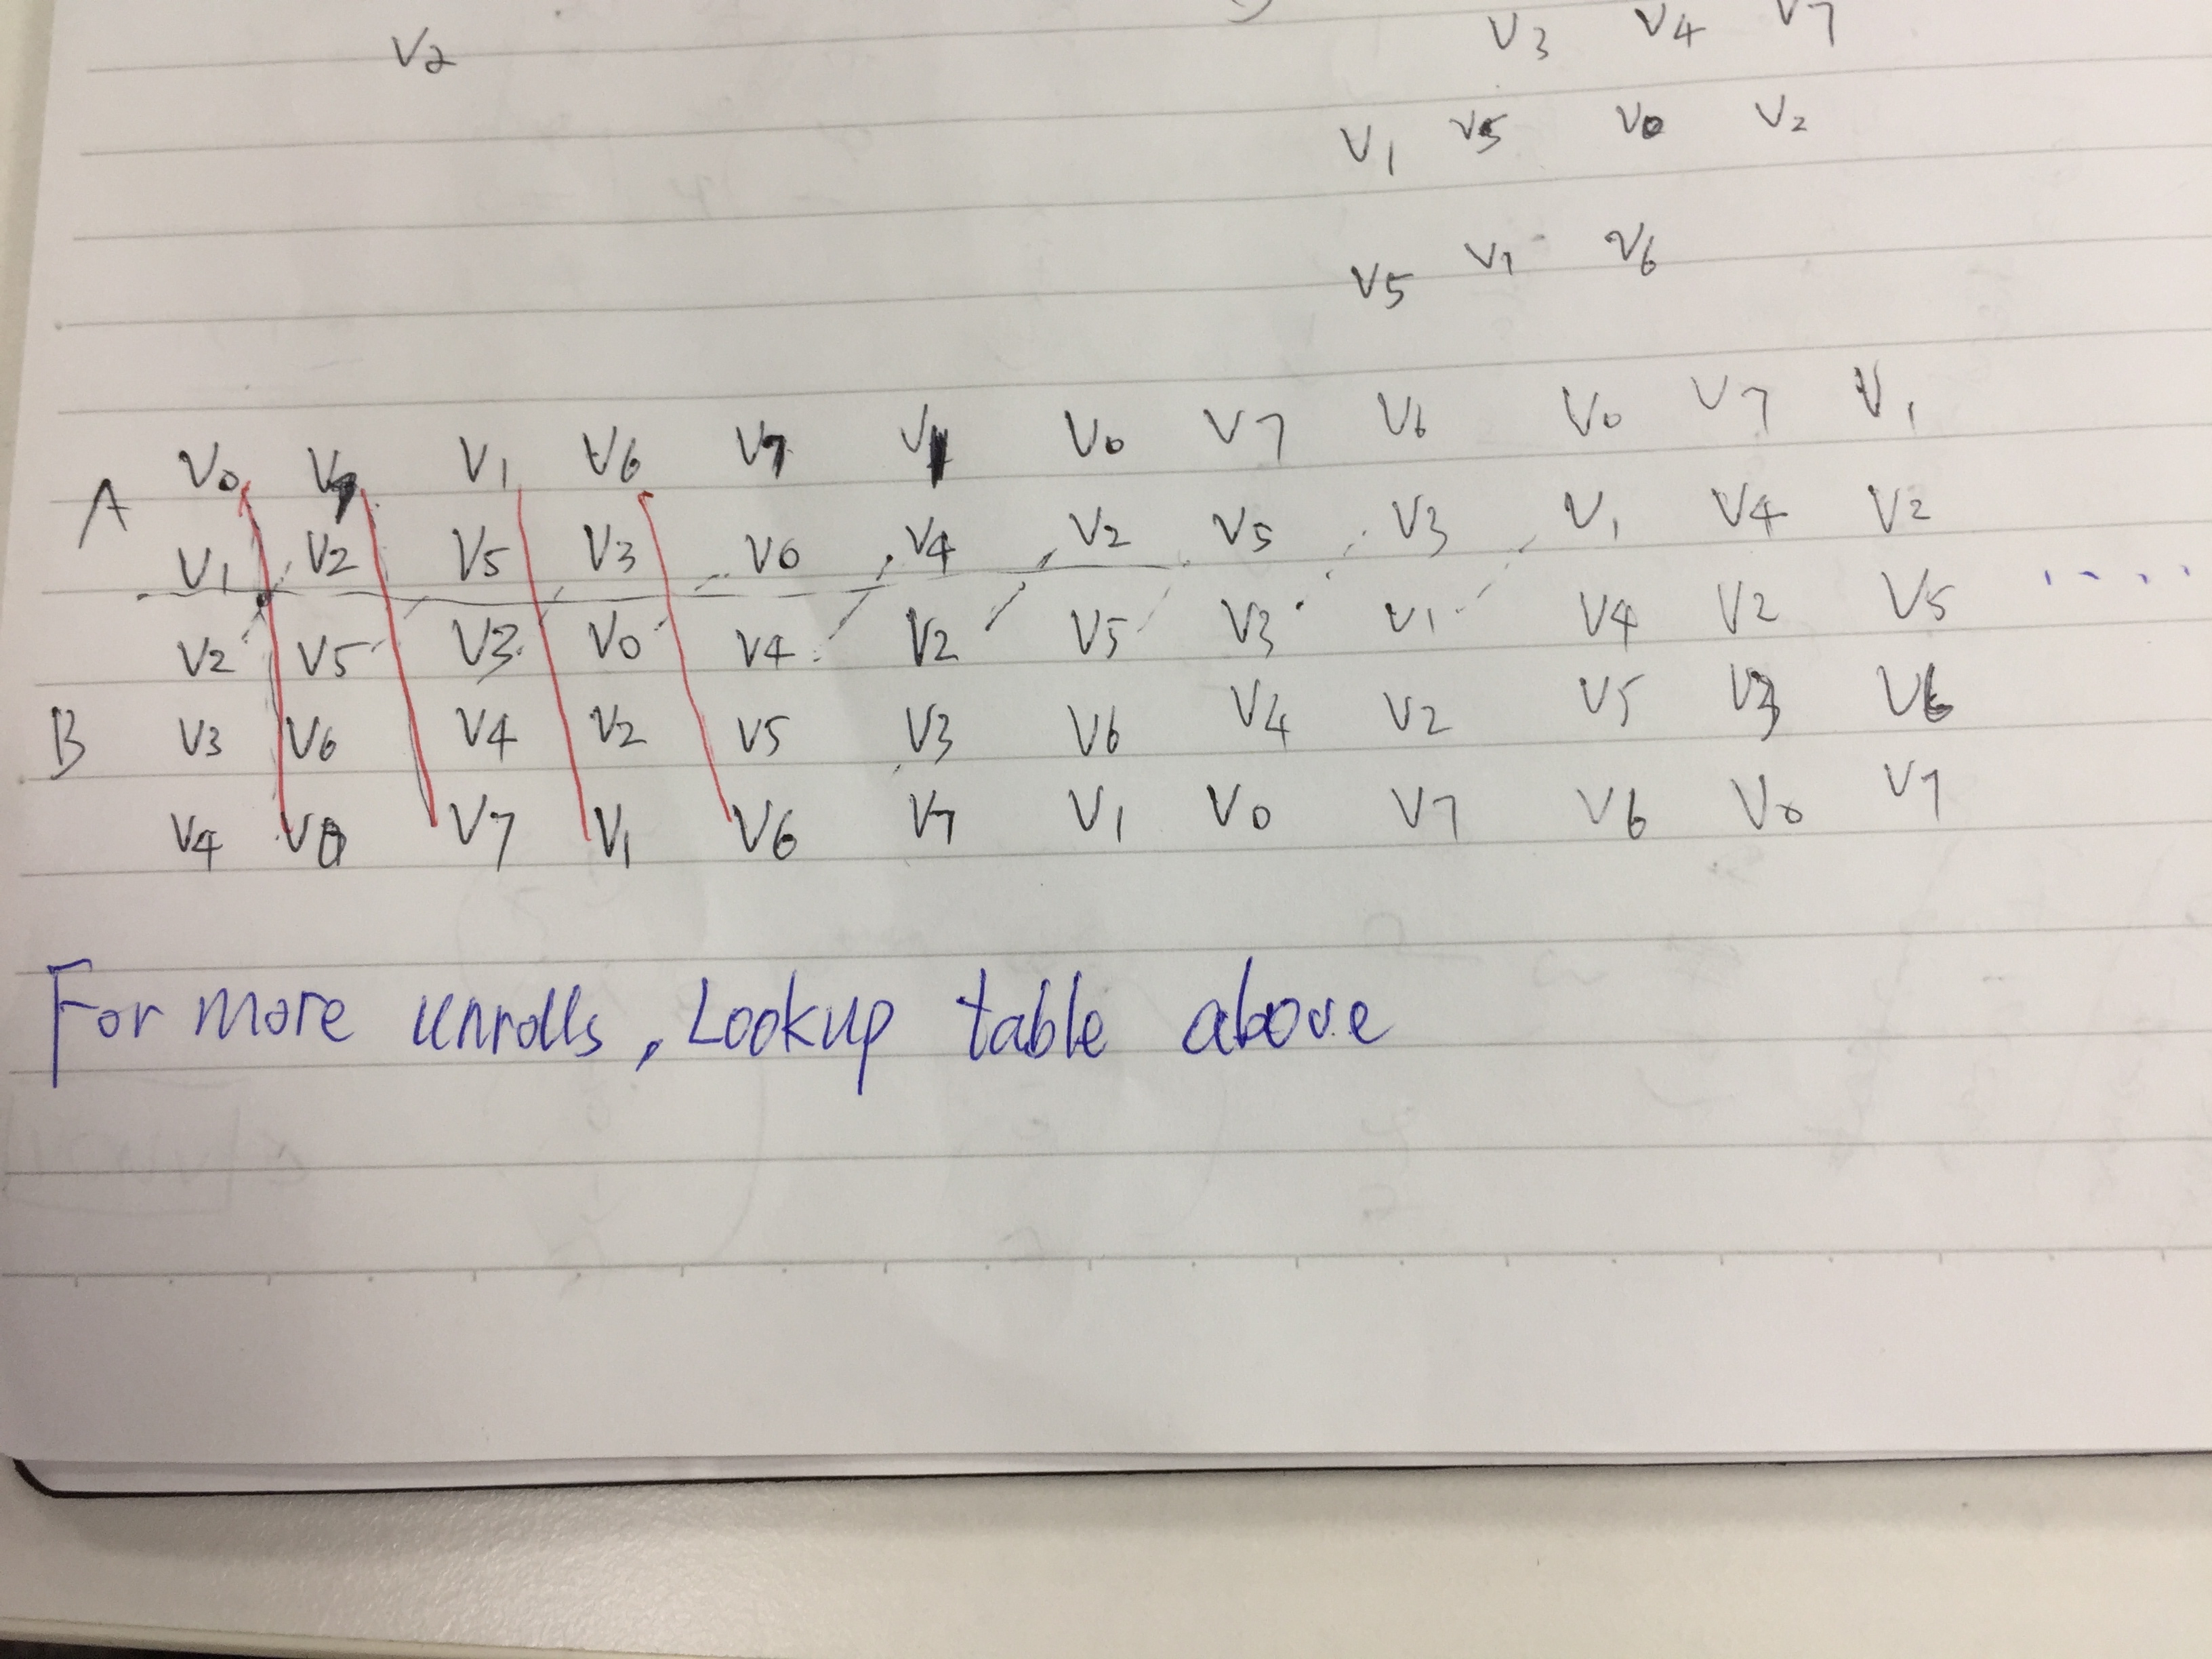 V2
V3 V4 V7
V1 V5 V0 V2
V5 V1 V6
V0 V7 V1 V6 V7 V1 V0 V7 V6 V0 V7 V1
A
V1 V2 V5 V3 V0 V4 V2 V5 V3 V1 V4 V2
V2 V5 V3 V0 V4 V2 V5 V3 V1 V4 V2 V5 ....
B V3 V6 V4 V2 V5 V3 V6 V4 V2 V5 V3 V6
V4 V0 V7 V1 V6 V7 V1 V0 V7 V6 V0 V7
For more unrolls, Lookup table above